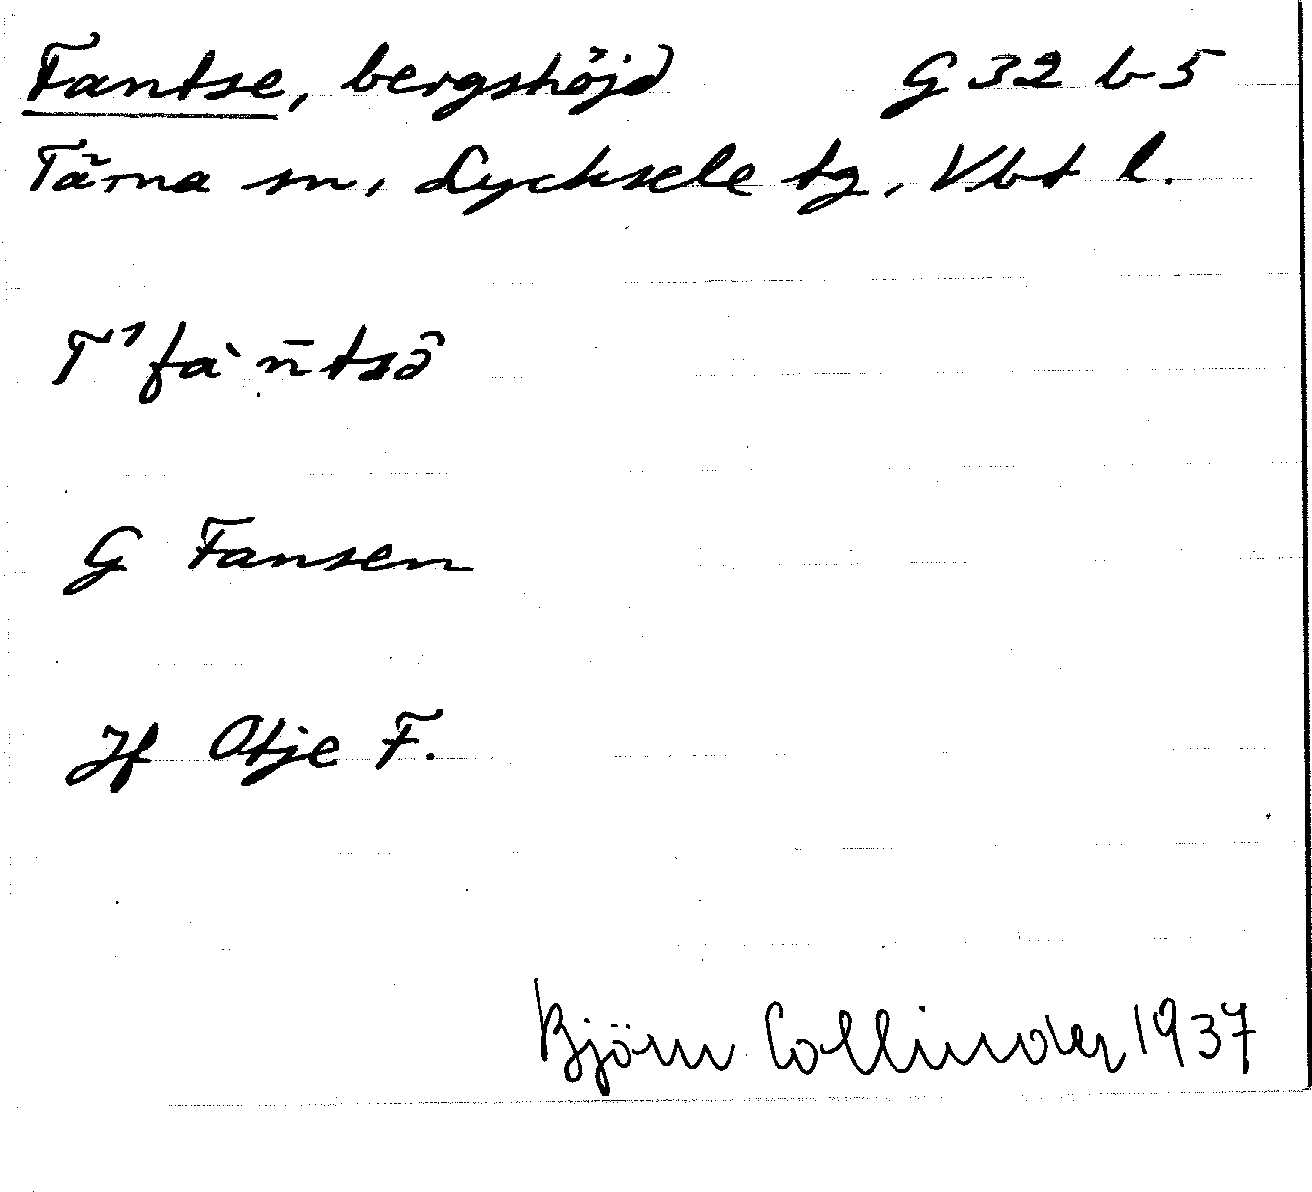 Fantse, bergshöjd G 32 b 5
Tärna sn, Lycksele tg, Vbt l.
T¹ fa`n̄tsô
G Fansen
Jf Otje F.
Björn Collinder 1937